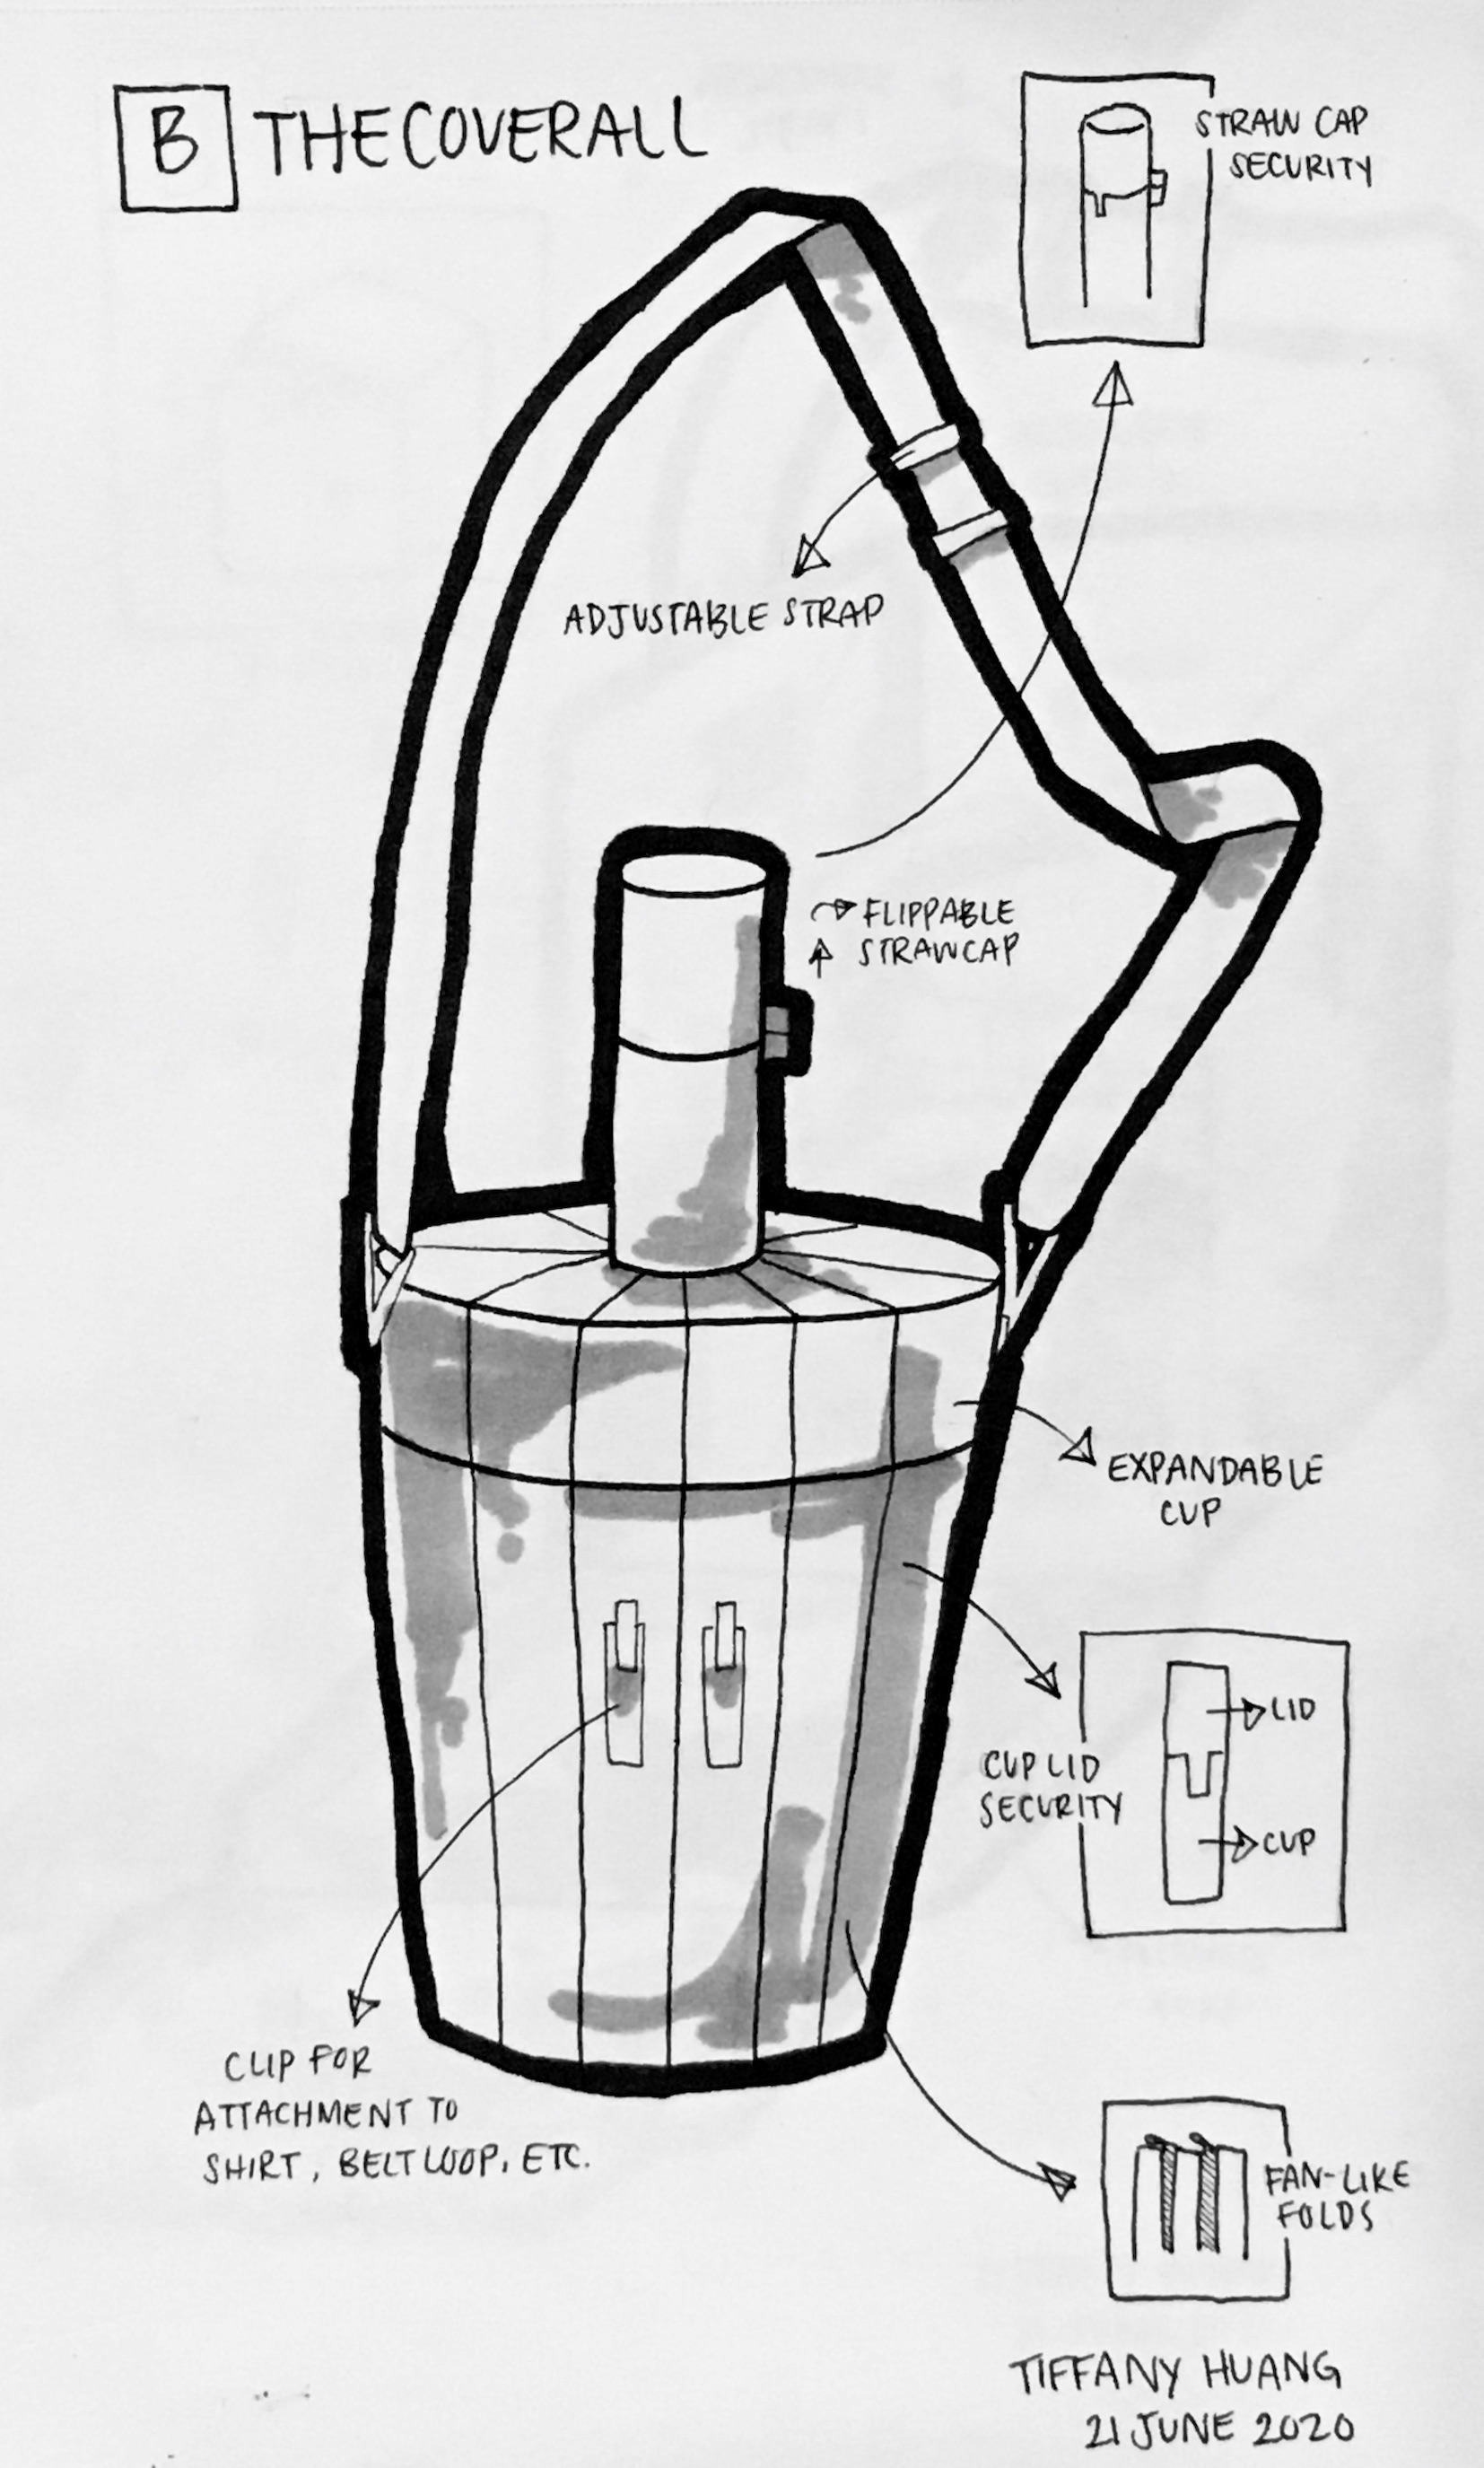 B THE COVERALL
STRAW CAP
SECURITY
ADJUSTABLE STRAP
FLIPPABLE
STRAWCAP
EXPANDABLE
CUP
CUP LID
SECURITY
LID
CUP
CLIP FOR
ATTACHMENT TO
SHIRT, BELT LOOP, ETC.
FAN-LIKE
FOLDS
TIFFANY HUANG
21 JUNE 2020